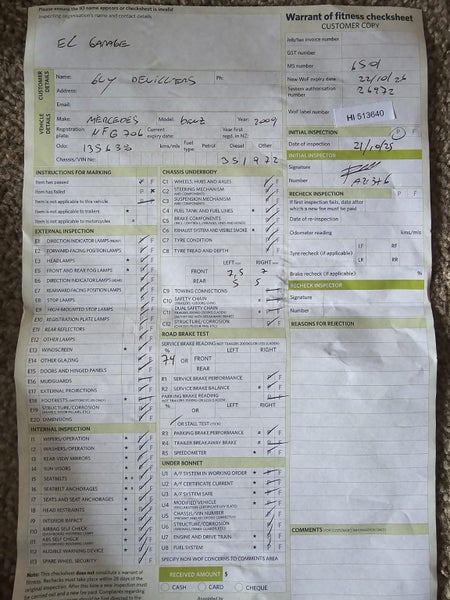 Please ensure the IO name appears or checksheet is invalid
Inspecting organisation's name and contact details.
EL GARAGE
Warrant of fitness checksheet
CUSTOMER COPY
Job/tax invoice number
GST number
MS number 6501
New WoF expiry date 22/10/26
System authorisation number 26972
WoF label number HI 513640
CUSTOMER DETAILS
Name: GUY DEVILLIERS Ph:
Address:
Email:
VEHICLE DETAILS
Make: MERCEDES Model: benz Year: 2009
Registration plate: NFG706 Current expiry date: Year first regd. in NZ:
Odo: 135633 km/mls Fuel type Petrol Diesel Other
Chassis/VIN No: 351972
INITIAL INSPECTION P F
Date of inspection 21/10/25
INITIAL INSPECTOR
Signature
Number
RECHECK INSPECTION P F
If first inspection fails, date after which a new fee must be paid
Date of re-inspection
Odometer reading kms/mls
Tyre recheck (if applicable) LF RF
LR RR
Brake recheck (if applicable) %
RECHECK INSPECTOR
Signature
Number
REASONS FOR REJECTION
COMMENTS
INSTRUCTIONS FOR MARKING
Item has passed
Item has failed
Item is not applicable to this vehicle
Item is not applicable to trailers
Item is not applicable to motorcycles
EXTERNAL INSPECTION
E1 DIRECTION INDICATOR LAMPS
E2 FORWARD-FACING POSITION LAMPS
E3 HEADLAMPS
E5 FRONT AND REAR FOG LAMPS
E6 DIRECTION INDICATOR LAMPS
E7 REARWARD-FACING POSITION LAMPS
E8 STOP LAMPS
E9 HIGH-MOUNTED STOP LAMPS
E10 REGISTRATION PLATE LAMPS
E11 REAR REFLECTORS
E12 OTHER LAMPS
E13 WINDSCREEN
E14 OTHER GLAZING
E15 DOORS AND HINGED PANELS
E16 MUDGUARDS
E17 EXTERNAL PROJECTIONS
E18 FOOTRESTS
E19 STRUCTURE/CORROSION
E20 DIMENSIONS
INTERNAL INSPECTION
I1 WIPERS/OPERATION
I2 WASHERS/OPERATION
I3 REAR-VIEW MIRRORS
I4 SUN VISORS
I5 SEATBELTS
I6 SEATBELT ANCHORAGES
I7 SEATS AND SEAT ANCHORAGES
I8 HEAD RESTRAINTS
I9 INTERIOR IMPACT
I10 AIRBAG SELF CHECK
I11 ABS SELF CHECK
I12 AUDIBLE WARNING DEVICE
I13 SPARE WHEEL SECURITY
CHASSIS UNDERBODY
C1 WHEELS, HUBS AND AXLES
C2 STEERING MECHANISM AND COMPONENTS
C3 SUSPENSION MECHANISM AND COMPONENTS
C4 FUEL TANK AND FUEL LINES
C5 BRAKE COMPONENTS
C6 EXHAUST SYSTEM AND VISIBLE SMOKE
C7 TYRE CONDITION
C8 TYRE TREAD AND DEPTH
LEFT RIGHT
FRONT 7,5 7
REAR 5 5
C9 TOWING CONNECTIONS
C10 SAFETY CHAIN
C11 DUAL SAFETY CHAIN
C12 STRUCTURE/CORROSION
ROAD BRAKE TEST
SERVICE BRAKE READING
LEFT RIGHT
74 OR FRONT
REAR
R1 SERVICE BRAKE PERFORMANCE
R2 SERVICE BRAKE BALANCE
PARKING BRAKE READING
LEFT RIGHT
% OR
OR STALL TEST
R3 PARKING BRAKE PERFORMANCE
R4 TRAILER BREAKAWAY BRAKE
R5 SPEEDOMETER
UNDER BONNET
U1 A/F SYSTEM IN WORKING ORDER
U2 A/F CERTIFICATE CURRENT
U3 A/F SYSTEM SAFE
U4 MODIFIED VEHICLE
U5 CHASSIS/VIN NUMBER
U6 STRUCTURE/CORROSION
U7 ENGINE AND DRIVE TRAIN
U8 FUEL SYSTEM
SPECIFY NON-WOF CONCERNS TO COMMENTS AREA
RECEIVED AMOUNT $
CASH CARD CHEQUE
Note: This checksheet does not constitute a warrant of fitness. Rechecks must take place within 28 days of the original inspection.